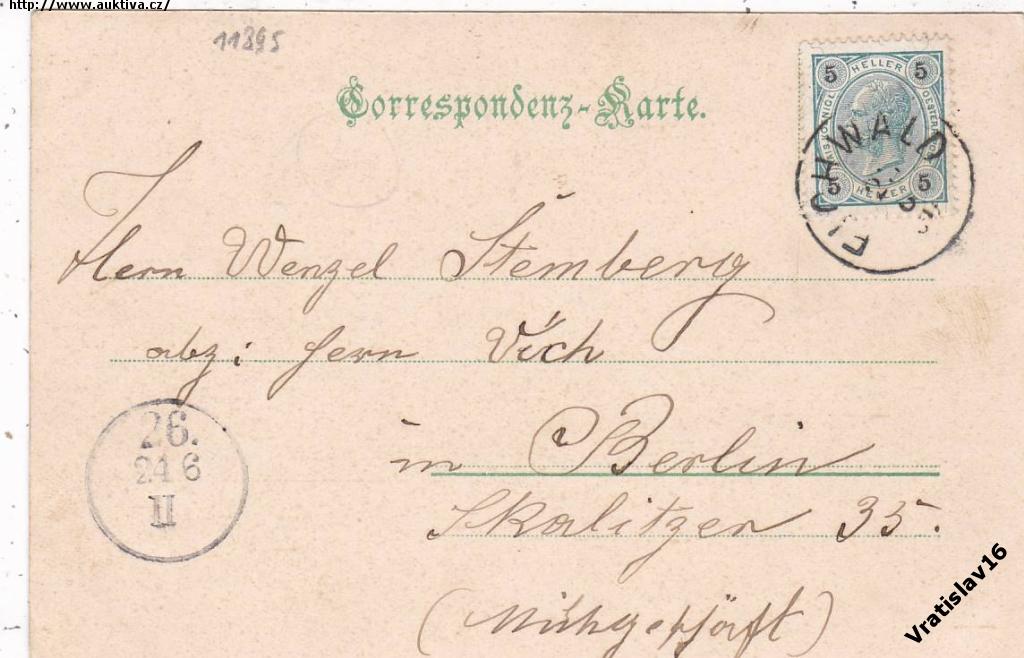 http://www.auktiva.cz/
11895
Correspondenz-Karte.
5 HELLER 5
5 HELLER 5
EICHWALD
Herrn Wenzel Stemberg
abz: Herrn
in Berlin
26.
24 6
II
Skalitzer 35.
Vratislav16